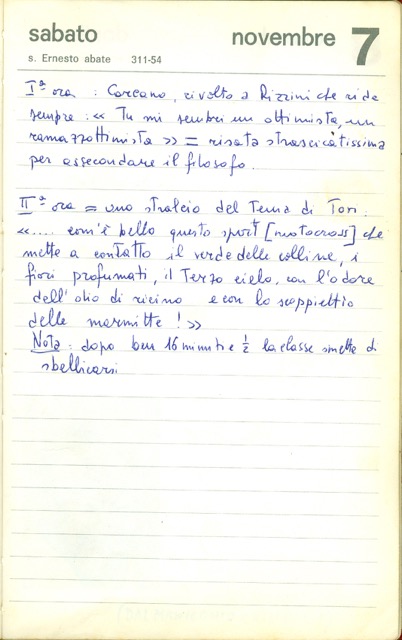 sabato novembre 7
s. Ernesto abate 311-54
Iª ora : Carcano, rivolto a Rizzini che ride
sempre : « Tu mi sembri un ottimista, un
ramazzottimista » = risata strascicatissima
per assecondare il filosofo.
IIª ora = uno stralcio del Tema di Tori :
« .... com'è bello questo sport [motocross] che
mette a contatto il verde delle colline, i
fiori profumati, il Terzo cielo, con l'odore
dell'olio di ricino e con lo scoppiettio
delle marmitte ! »
Nota : dopo ben 16 minuti e ½ la classe smette di
sbellicarsi